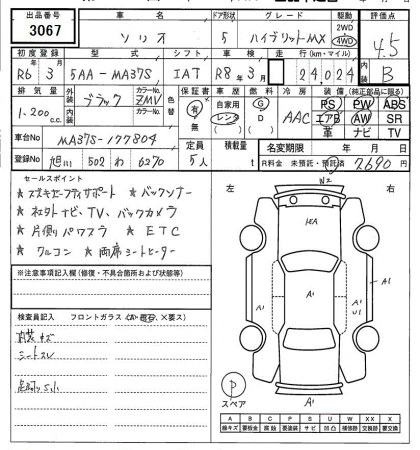 出品番号 車名 ドア形状 グレード 駆動 評価点
3067 ソリオ 5 ハイブリットMX 2WD 4WD 4.5
初度登録 型式 シフト 車検 走行(km・マイル) 内装
R6 3月 5AA-MA37S IAT R8年3月 24,024 B
排気量 外装色 カラーNo. 色替 保証書 車歴 燃料 冷房 装備(純正部品に限る)
1,200cc ブラック ZMV 有・無 自家用 レンタ G D AAC PS PW ABS
エアB AW SR
革 ナビ TV
車台No. MA37S-177804 定員 積載量 名変期限 年 月 日
登録No. 旭川 502 わ 6270 5人 t R料金 未預託・預託済 7690円
セールスポイント
★スズキセーフティサポート ★バックソナー
★社外ナビ、TV、バックカメラ
★片側パワスラ ★ETC
★クルコン ★両席シートヒーター
※注意事項記入欄(修復・不具合箇所および状態等)
検査員記入 フロントガラス(A・飛石、×要ス)
内装キズ
シートスレ
左 右
W2
A1 A1 A1 A1
U1
P
スペア
A B C P S U W X XX
線キズ 要板金 腐蝕 要塗装 サビ 凹凸 補修跡 交換跡 要交換